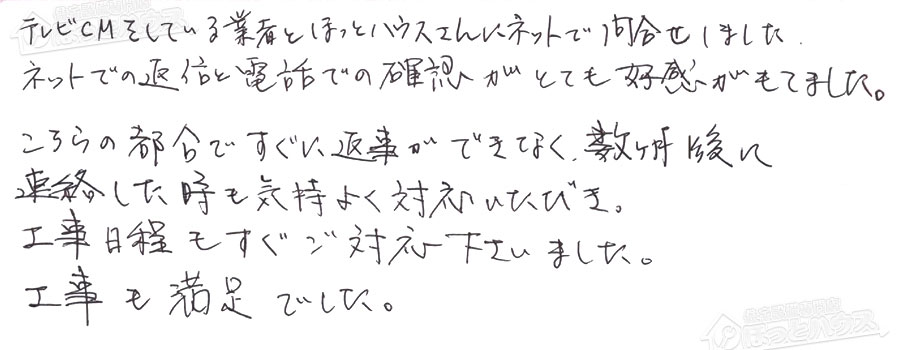 テレビCMをしている業者とほっとハウスさんにネットで問合せしました.
ネットでの返信と電話での確認がとても好感がもてました。
こちらの都合ですぐに返事ができなく、数ヶ月後に
連絡した時も気持よく対応いただき。
工事日程もすぐご対応下さいました。
工事も満足でした。
住宅設備専門店
ほっとハウス